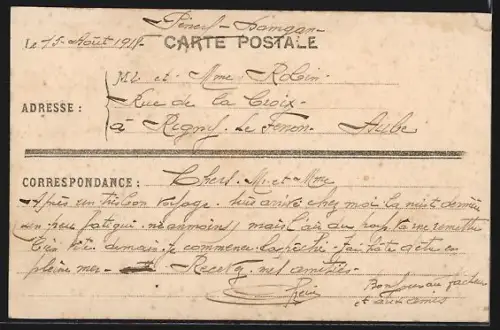 Pénerf - Damgan -
Le 15 - Août 1918 -
CARTE POSTALE
Mr et Mme Robin -
ADRESSE :
Rue de la Croix -
à Rigny - le - Ferron - Aube
CORRESPONDANCE :
Chers Mr et Mme
Après un très bon voyage suis arrivé chez moi la nuit dernière
un peu fatigué néanmoins, mais l'air du pays va me remettre
très vite. demain je commence la pêche j'ai hâte
pleine mer - Recevez mes amitiés -
Bonjour au facteur
et aux